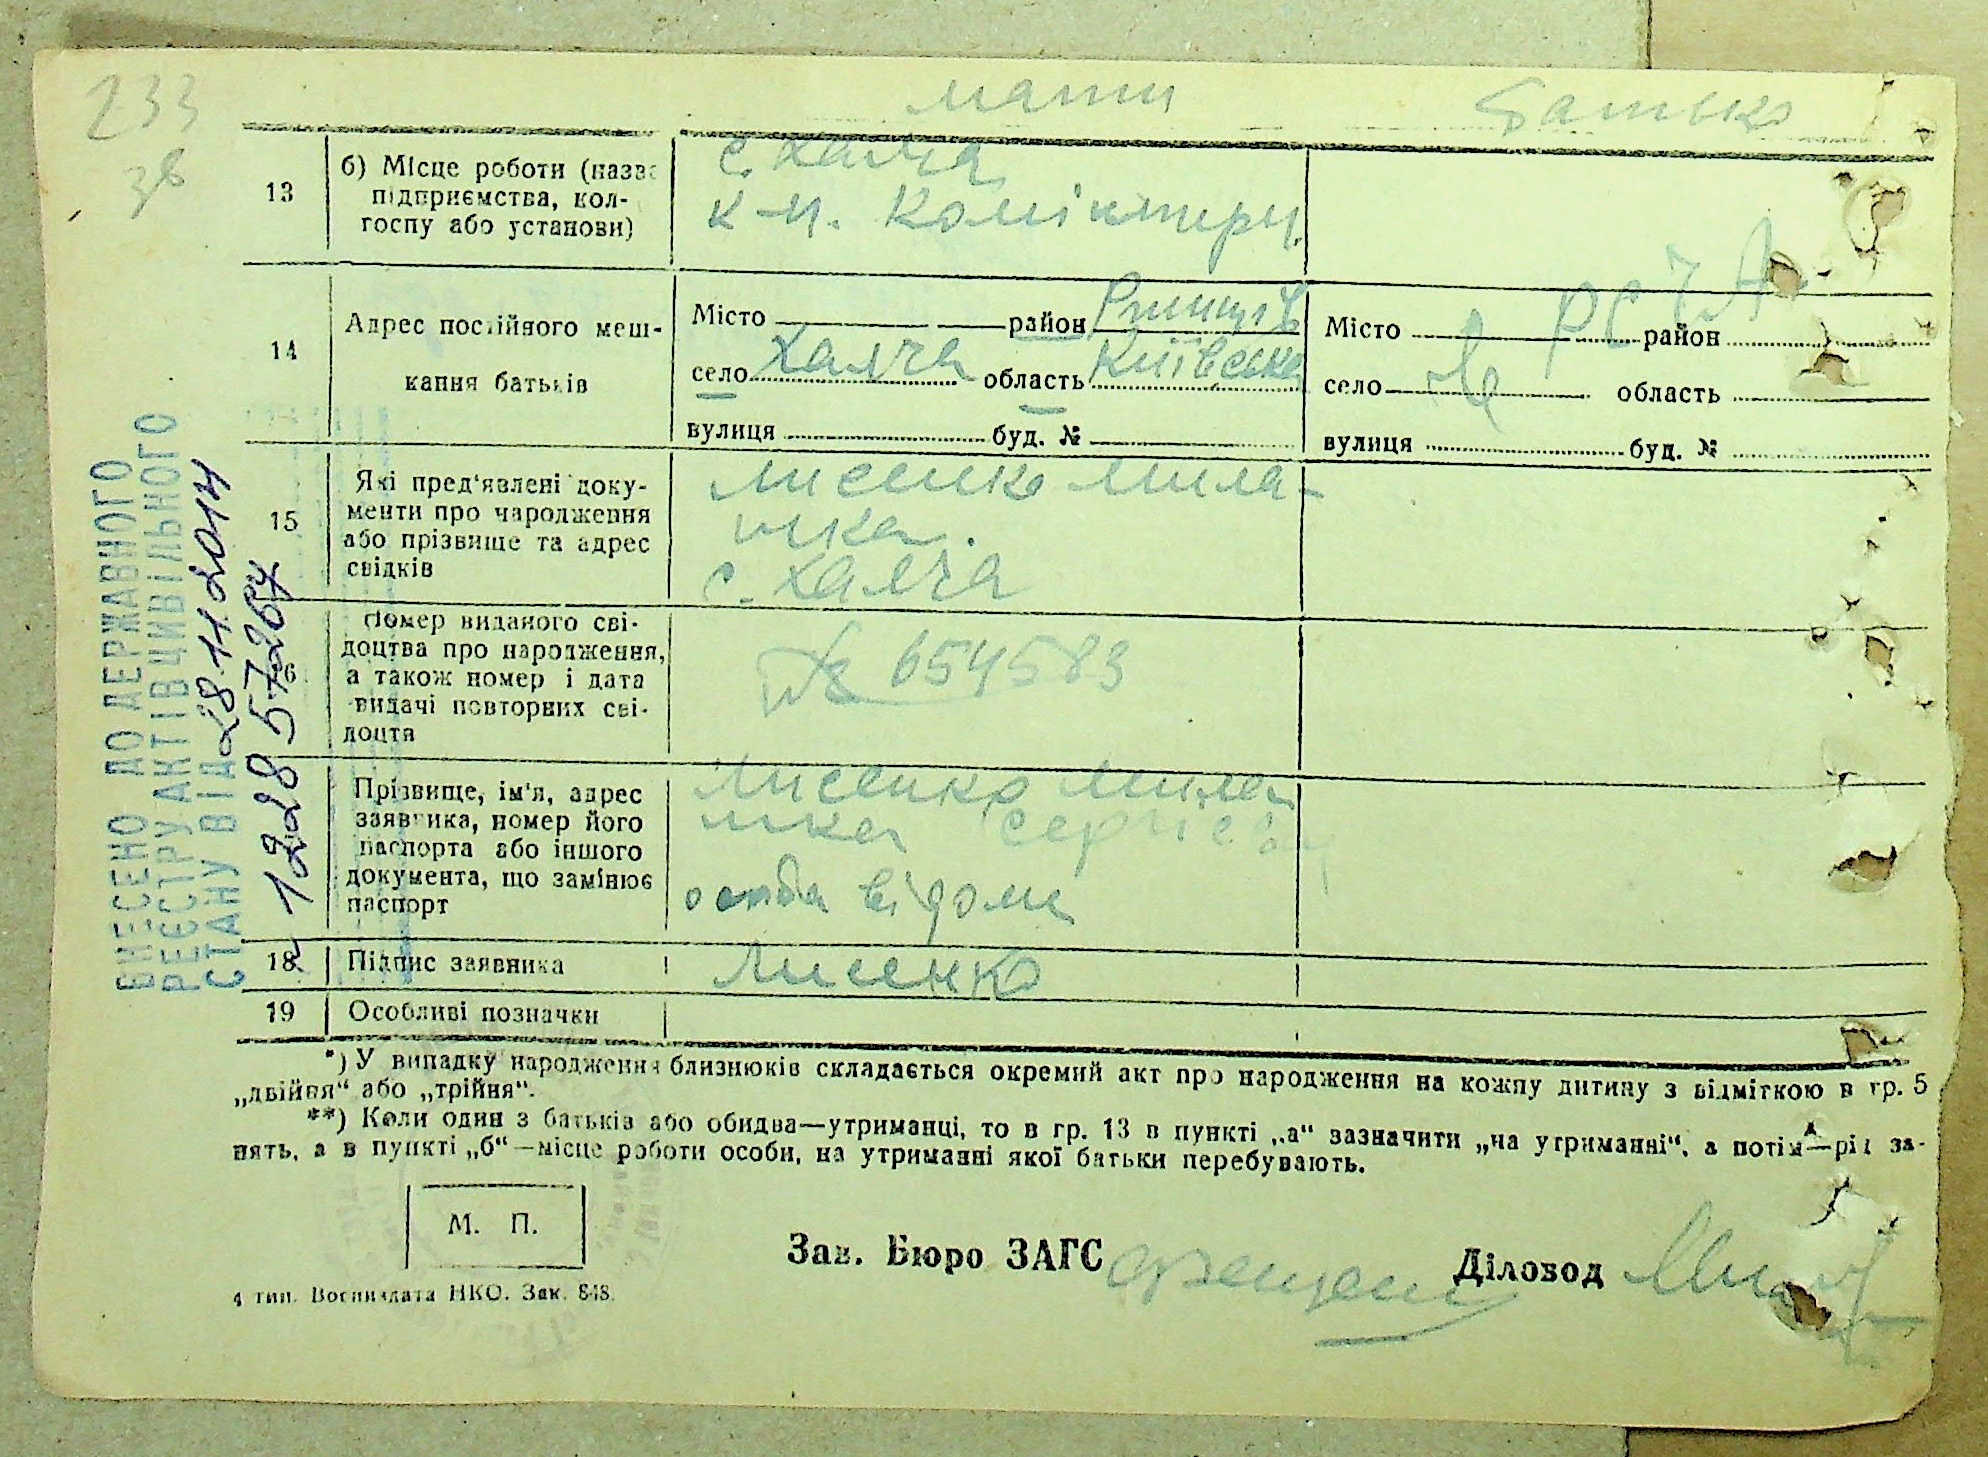 233
зв
мати
батько
13
б) Місце роботи (назва
підприємства, кол-
госпу або установи)
с. Халча
к-п. Комінтерн.
14
Адрес постійного меш-
кання батьків
Місто район Ржищів
село Халча область Київська
вулиця буд. №
Місто район
село область
вулиця буд. №
в РСЧА
15
Які пред'явлені доку-
менти про народження
або прізвище та адрес
свідків
Лисенко Мила-
шка.
с. Халча
16
Номер виданого сві-
доцтва про народження,
а також номер і дата
видачі повторних сві-
доцтв
№ 654583
Прізвище, ім'я, адрес
заявника, номер його
паспорта або іншого
документа, що замінює
паспорт
Лисенко Мила
шка Сергіє
особа відома
18
Підпис заявника
Лисенко
19
Особливі позначки
*) У випадку народження близнюків складається окремий акт про народження на кожну дитину з відміткою в гр. 5
„двійня“ або „трійня“.
**) Коли один з батьків або обидва—утриманці, то в гр. 13 в пункті „а“ зазначити „на утриманні“, а потім—рід за-
нять, а в пункті „б“—місце роботи особи, на утриманні якої батьки перебувають.
М. П.
Зав. Бюро ЗАГС
Діловод
4 тип. Воениздата НКО. Зак. 848.
ВНЕСЕНО ДО ДЕРЖАВНОГО
РЕЄСТРУ АКТІВ ЦИВІЛЬНОГО
СТАНУ ВІД 28 11 2014